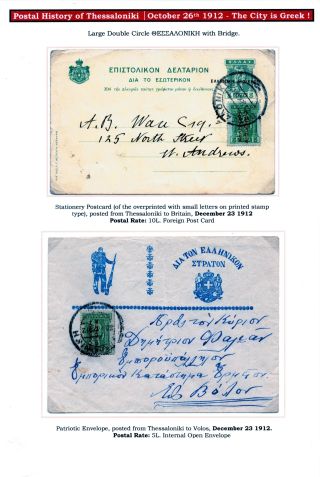 Postal History of Thessaloniki | October 26th 1912 - The City is Greek !
Large Double Circle ΘΕΣΣΑΛΟΝΙΚΗ with Bridge.
ΕΠΙΣΤΟΛΙΚΟΝ ΔΕΛΤΑΡΙΟΝ
ΔΙΑ ΤΟ ΕΣΩΤΕΡΙΚΟΝ
ΕΛΛΑΣ
A. B. Wace Esq.
125 North Street
St. Andrews.
Stationery Postcard (of the overprinted with small letters on printed stamp
type), posted from Thessaloniki to Britain, December 23 1912
Postal Rate: 10L. Foreign Post Card
ΔΙΑ ΤΟΝ ΕΛΛΗΝΙΚΟΝ
ΣΤΡΑΤΟΝ
Πρὸς τὸν Κύριον
Δημήτριον
Ἐμποροϋπάλληλον
Ἐμπορικὸν Κατάστημα
Βόλον
Patriotic Envelope, posted from Thessaloniki to Volos, December 23 1912.
Postal Rate: 5L. Internal Open Envelope